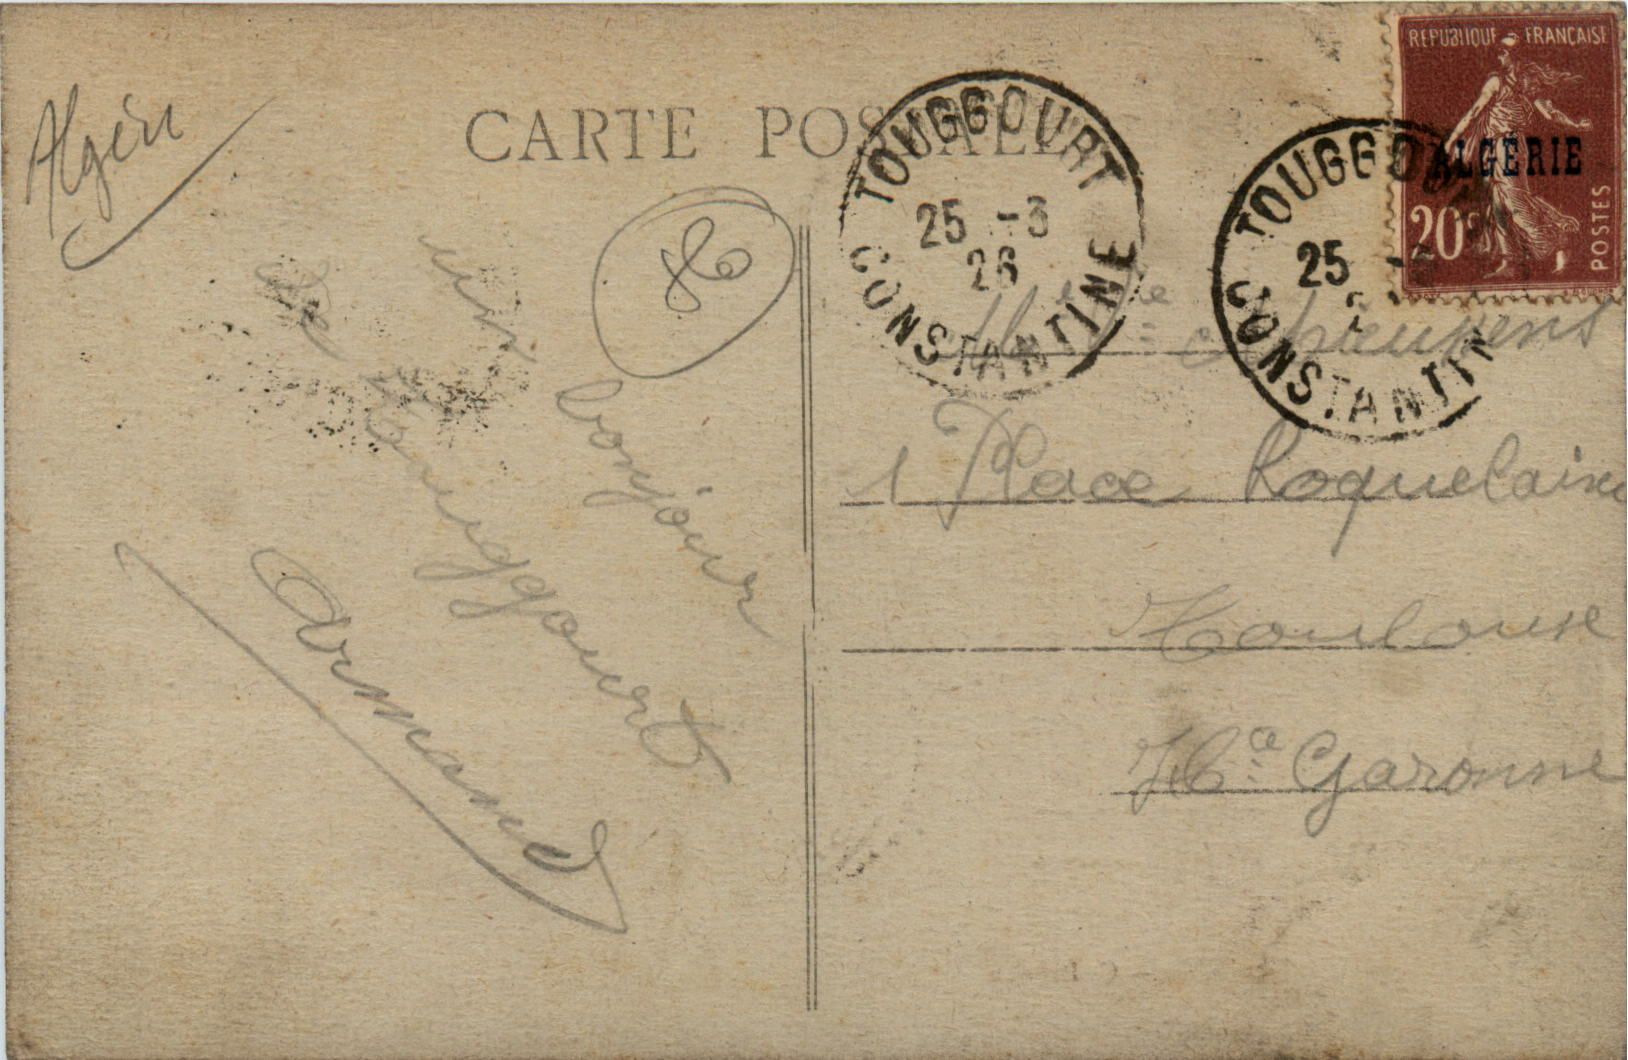 Algérie
CARTE POSTALE
un bonjour
de Touggourt
Armand
TOUGGOURT
25 -3
26
CONSTANTINE
TOUGGOURT
25
CONSTANTINE
REPUBLIQUE FRANÇAISE
ALGÉRIE
20c
POSTES
1 Place Roquelaine
Toulouse
Hte Garonne